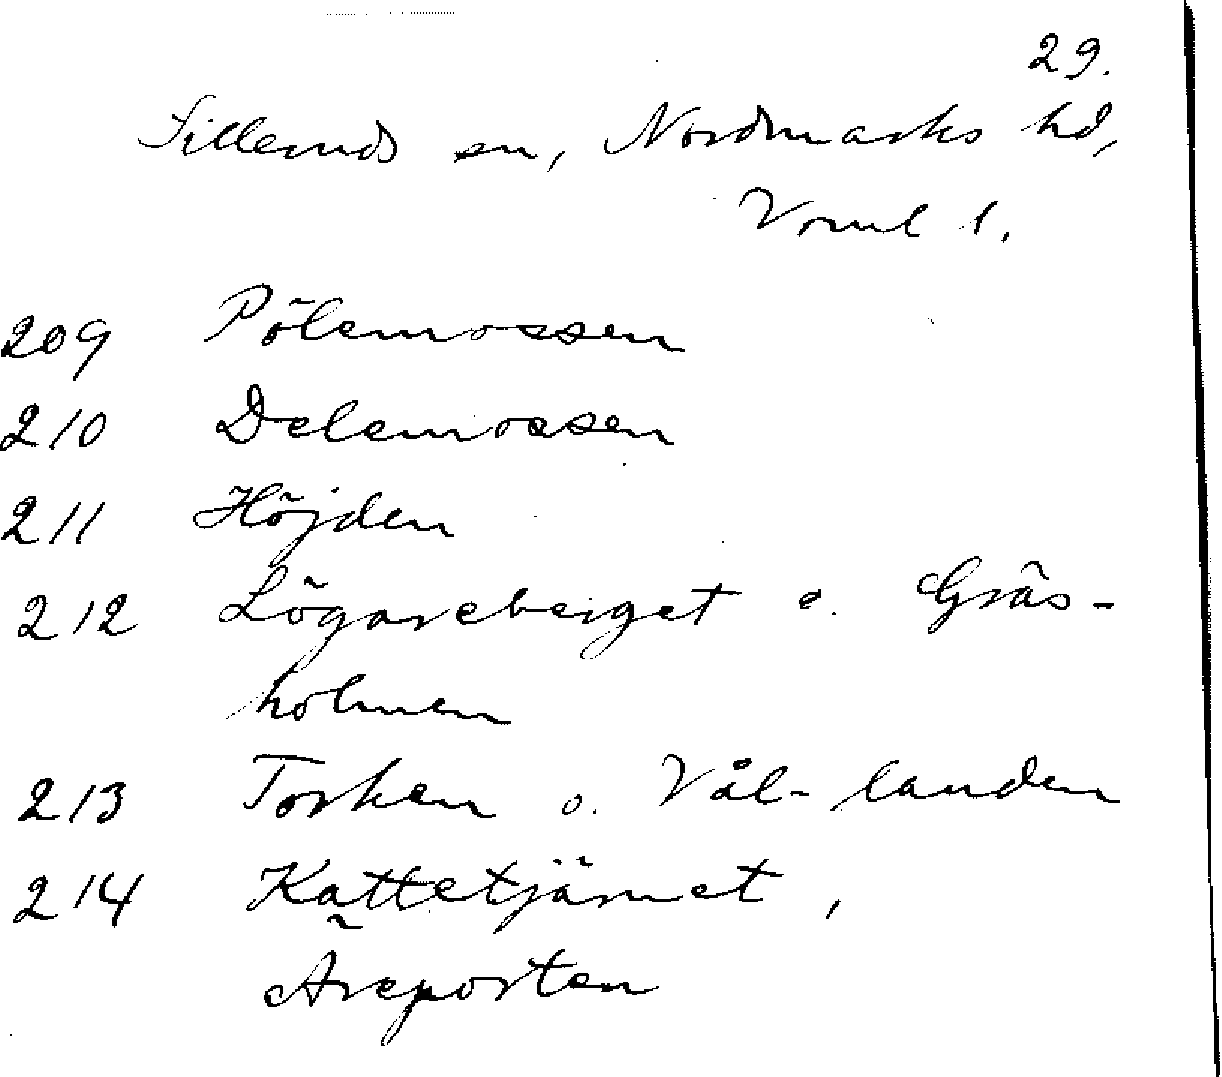 29.
Silleruds sn, Nordmarks hd,
Vrml l.
209 Pölemossen
210 Delemossen
211 Höjden
212 Lögareberget o. Gräs-
holmen
213 Torken o. Vål-landen
214 Kattetjärnet,
Äreporten